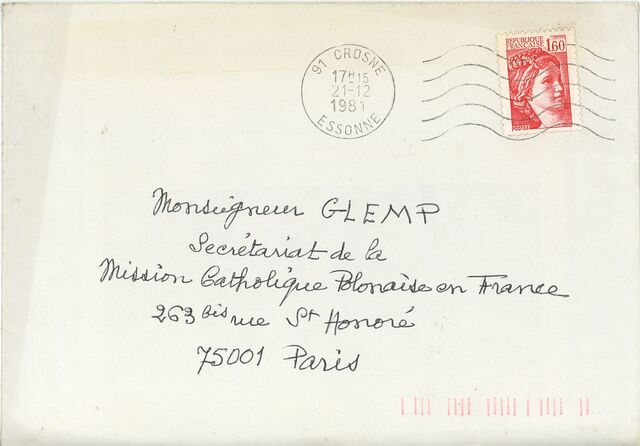 91 CROSNE
17H15
21-12
1981
ESSONNE
REPUBLIQUE
FRANCAISE 1,60
POSTES
Monseigneur GLEMP
Secrétariat de la
Mission Catholique Polonaise en France
263 bis rue St Honoré
75001 Paris